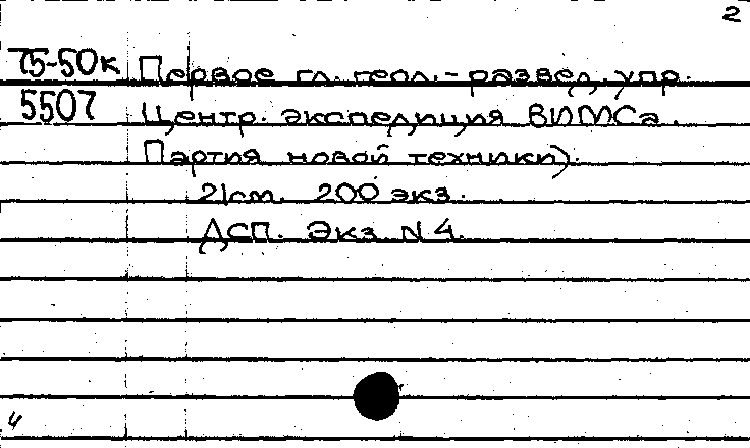 2
75-50к Первое гл. геол.-развед. упр.
5507 Центр. экспедиция ВИМСа.
Партия новой техники).
21см. 200 экз.
ДСП. Экз N 4.
4